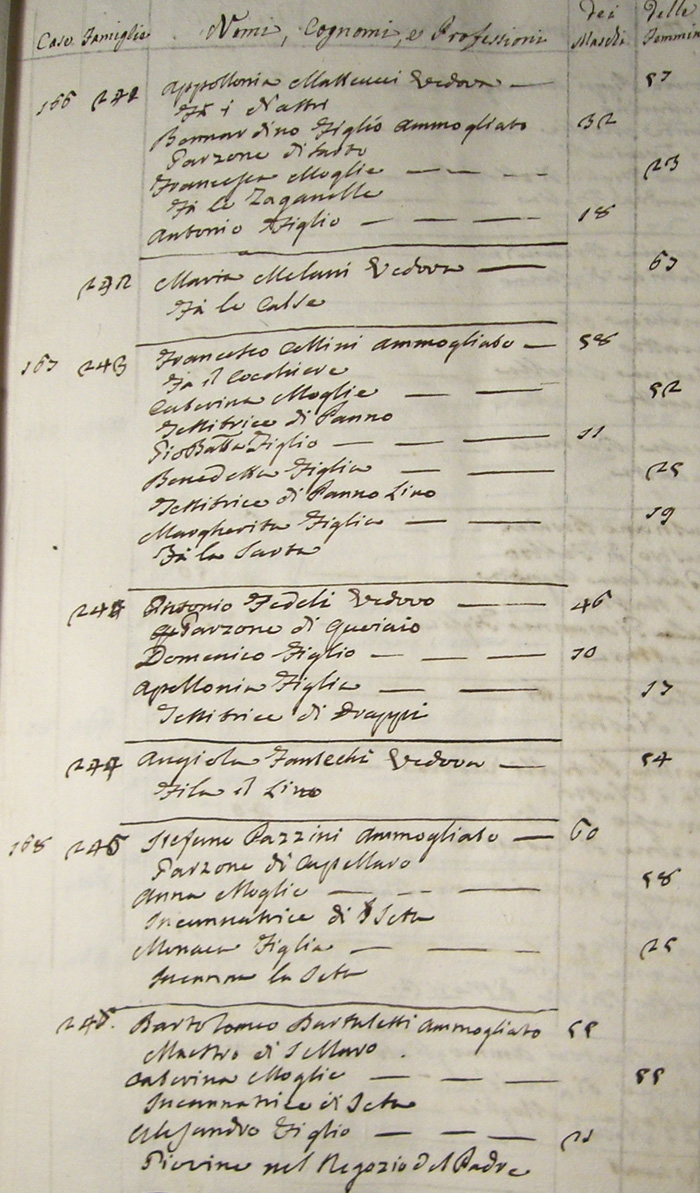 Case Famiglie Nomi, Cognomi, e Professioni Dei Maschi Delle Femmin
166 241 Appollonia Matteucci Vedova — 57
Fà i Nastri
Bernardino Figlio Ammogliato 32
Garzone di sarto
Francesca Moglie — — — 23
Fà le Zaganelle
Antonio Figlio — — — 18
242 Maria Melani Vedova — 63
Fà le Calse
167 243 Francesco Cellini Ammogliato — 58
Fà il Cocchiere
Caterina Moglie — — 52
Tessitrice di Panno
Gio Batta Figlio — — — 11
Benedetta Figlia — — — 25
Tessitrice di Panno Lino
Margherita Figlia — — 19
Fà la Sarta
244 Antonio Fedeli Vedovo — 46
Garzone di
Domenico Figlio — — — 10
Apollonia Figlia — — — 17
Tessitrice di Drappi
244 Angiola Fantechi Vedova — 54
Fila il Lino
168 245 Stefano Pazzini Ammogliato — 60
Garzone di Cappellaro
Anna Moglie — — — 58
Incannatrice di Seta
Monaca Figlia — — — 25
Incanna la Seta
246. Bartolomeo Bartuletti Ammogliato 55
Maestro di Sellaro
Caterina Moglie — — — 55
Incannatrice di Seta
Alesandro Figlio — — — 21
Giovine nel Negozio del Padre